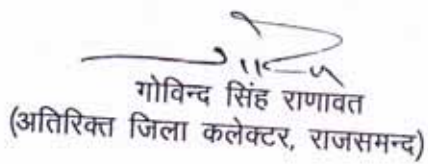 गोविन्द सिंह राणावत
(अतिरिक्त जिला कलेक्टर, राजसमन्द)